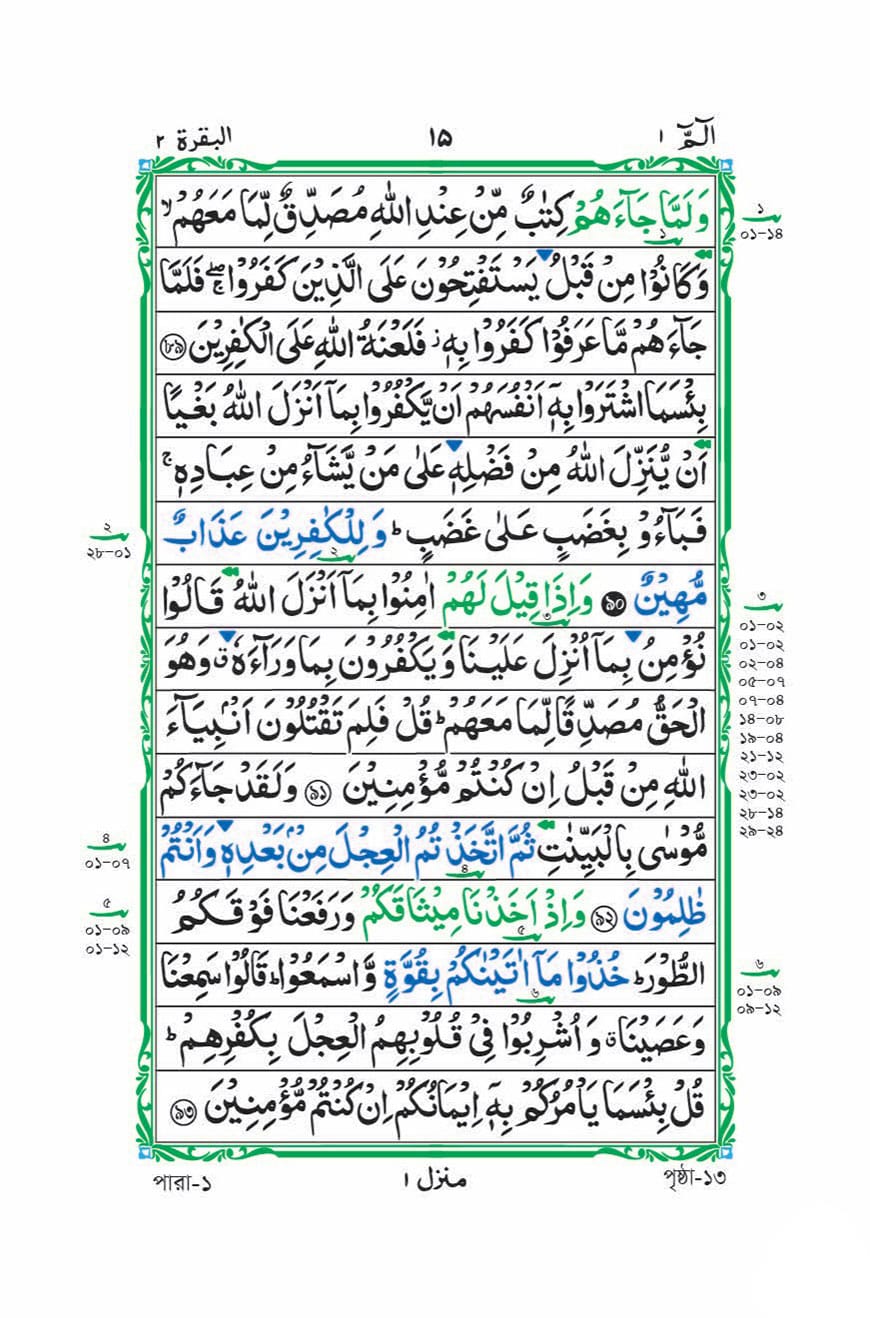 الٓمّٓ ١
١٥
البقرة ٢
وَلَمَّا جَآءَهُمْ كِتٰبٌ مِّنْ عِنْدِ اللّٰهِ مُصَدِّقٌ لِّمَا مَعَهُمْ ۙ
وَكَانُوْا مِنْ قَبْلُ يَسْتَفْتِحُوْنَ عَلَى الَّذِيْنَ كَفَرُوْا ۚۖ فَلَمَّا
جَآءَهُمْ مَّا عَرَفُوْا كَفَرُوْا بِهٖ ز فَلَعْنَةُ اللّٰهِ عَلَى الْكٰفِرِيْنَ ৮৯
بِئْسَمَا اشْتَرَوْا بِهٖٓ اَنْفُسَهُمْ اَنْ يَّكْفُرُوْا بِمَآ اَنْزَلَ اللّٰهُ بَغْيًا
اَنْ يُّنَزِّلَ اللّٰهُ مِنْ فَضْلِهٖ عَلٰى مَنْ يَّشَآءُ مِنْ عِبَادِهٖ ۚ
فَبَآءُوْ بِغَضَبٍ عَلٰى غَضَبٍ ؕ وَلِلْكٰفِرِيْنَ عَذَابٌ
২
مُّهِيْنٌ ৯০ وَاِذَا قِيْلَ لَهُمْ اٰمِنُوْا بِمَآ اَنْزَلَ اللّٰهُ قَالُوْا
৩
نُؤْمِنُ بِمَآ اُنْزِلَ عَلَيْنَا وَيَكْفُرُوْنَ بِمَا وَرَآءَهٗ ق وَهُوَ
الْحَقُّ مُصَدِّقًا لِّمَا مَعَهُمْ ؕ قُلْ فَلِمَ تَقْتُلُوْنَ اَنْۢبِيَآءَ
اللّٰهِ مِنْ قَبْلُ اِنْ كُنْتُمْ مُّؤْمِنِيْنَ ৯১ وَلَقَدْ جَآءَكُمْ
مُّوْسٰى بِالْبَيِّنٰتِ ثُمَّ اتَّخَذْتُمُ الْعِجْلَ مِنْۢ بَعْدِهٖ وَاَنْتُمْ
৪
ظٰلِمُوْنَ ৯২ وَاِذْ اَخَذْنَا مِيْثَاقَكُمْ وَرَفَعْنَا فَوْقَكُمُ
৫
الطُّوْرَ ؕ خُذُوْا مَآ اٰتَيْنٰكُمْ بِقُوَّةٍ وَّاسْمَعُوْا ؕ قَالُوْا سَمِعْنَا
৬
وَعَصَيْنَا ق وَاُشْرِبُوْا فِيْ قُلُوْبِهِمُ الْعِجْلَ بِكُفْرِهِمْ ؕ
قُلْ بِئْسَمَا يَاْمُرُكُمْ بِهٖٓ اِيْمَانُكُمْ اِنْ كُنْتُمْ مُّؤْمِنِيْنَ ৯৩
১
০১-১৪
৩
০১-০২
০১-০২
০২-০৪
০৫-০৭
০৭-০৪
১৪-০৮
১৯-০৪
২১-১২
২৩-০২
২৩-০২
২৮-১৪
২৯-২৪
৬
০১-০৯
০৯-১২
২
২৮-০১
৪
০১-০৭
৫
০১-০৯
০১-১২
পারা-১
منزل ١
পৃষ্ঠা-১৩